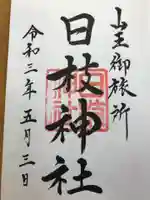 山王御旅所
日枝神社
令和三年五月三日